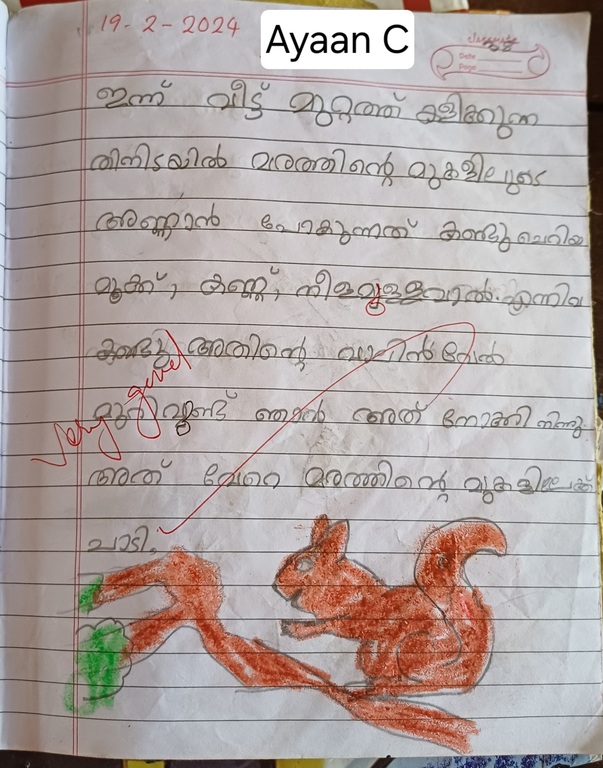 19-2-2024
Ayaan C
Date
Page
ഇന്ന് വീട്ട് മുറ്റത്ത് കളിക്കുന്ന
തിനിടയിൽ മരത്തിന്റെ മുകളിലൂടെ
അണ്ണാൻ പോകുന്നത് കണ്ടു ചെറിയ
മൂക്ക്, കണ്ണ്, നീളമുള്ളവാൽ. എന്നിവ
കണ്ടു അതിന്റെ വാലിൻ
മുറിവുണ്ട് ഞാൻ അത് നോക്കി നിന്നു.
അത് വേറെ മരത്തിന്റെ മുകളിലേക്ക്
ചാടി.
Very good